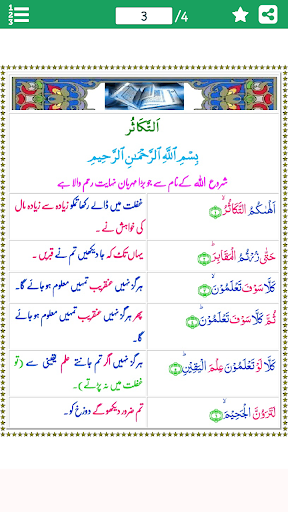 1
2
3
3
/4
اَلتَّكَاثُر
بِسْمِ ٱللَّهِ ٱلرَّحْمَٰنِ ٱلرَّحِيمِ
شروع اللہ کے نام سے جو بڑا مہربان نہایت رحم والا ہے
اَلْهٰىكُمُ التَّكَاثُرُۙ
غفلت میں ڈالے رکھا تمکو زیادہ سے زیادہ مال
کی خواہش نے ۔
حَتّٰى زُرْتُمُ الْمَقَابِرَؕ
یہاں تک کہ جا دیکھیں تم نے قبریں۔
كَلَّا سَوْفَ تَعْلَمُوْنَۙ
ہرگز نہیں عنقریب تمہیں معلوم ہو جائے گا۔
ثُمَّ كَلَّا سَوْفَ تَعْلَمُوْنَؕ
پھر ہرگز نہیں عنقریب تمہیں معلوم ہو جائے
گا۔
كَلَّا لَوْ تَعْلَمُوْنَ عِلْمَ الْيَقِيْنِؕ
ہرگز نہیں اگر تم جانتے علم یقینی سے (تو
غفلت میں نہ پڑتے)۔
لَتَرَوُنَّ الْجَحِيْمَۙ
تم ضرور دیکھو گے دوزخ کو۔